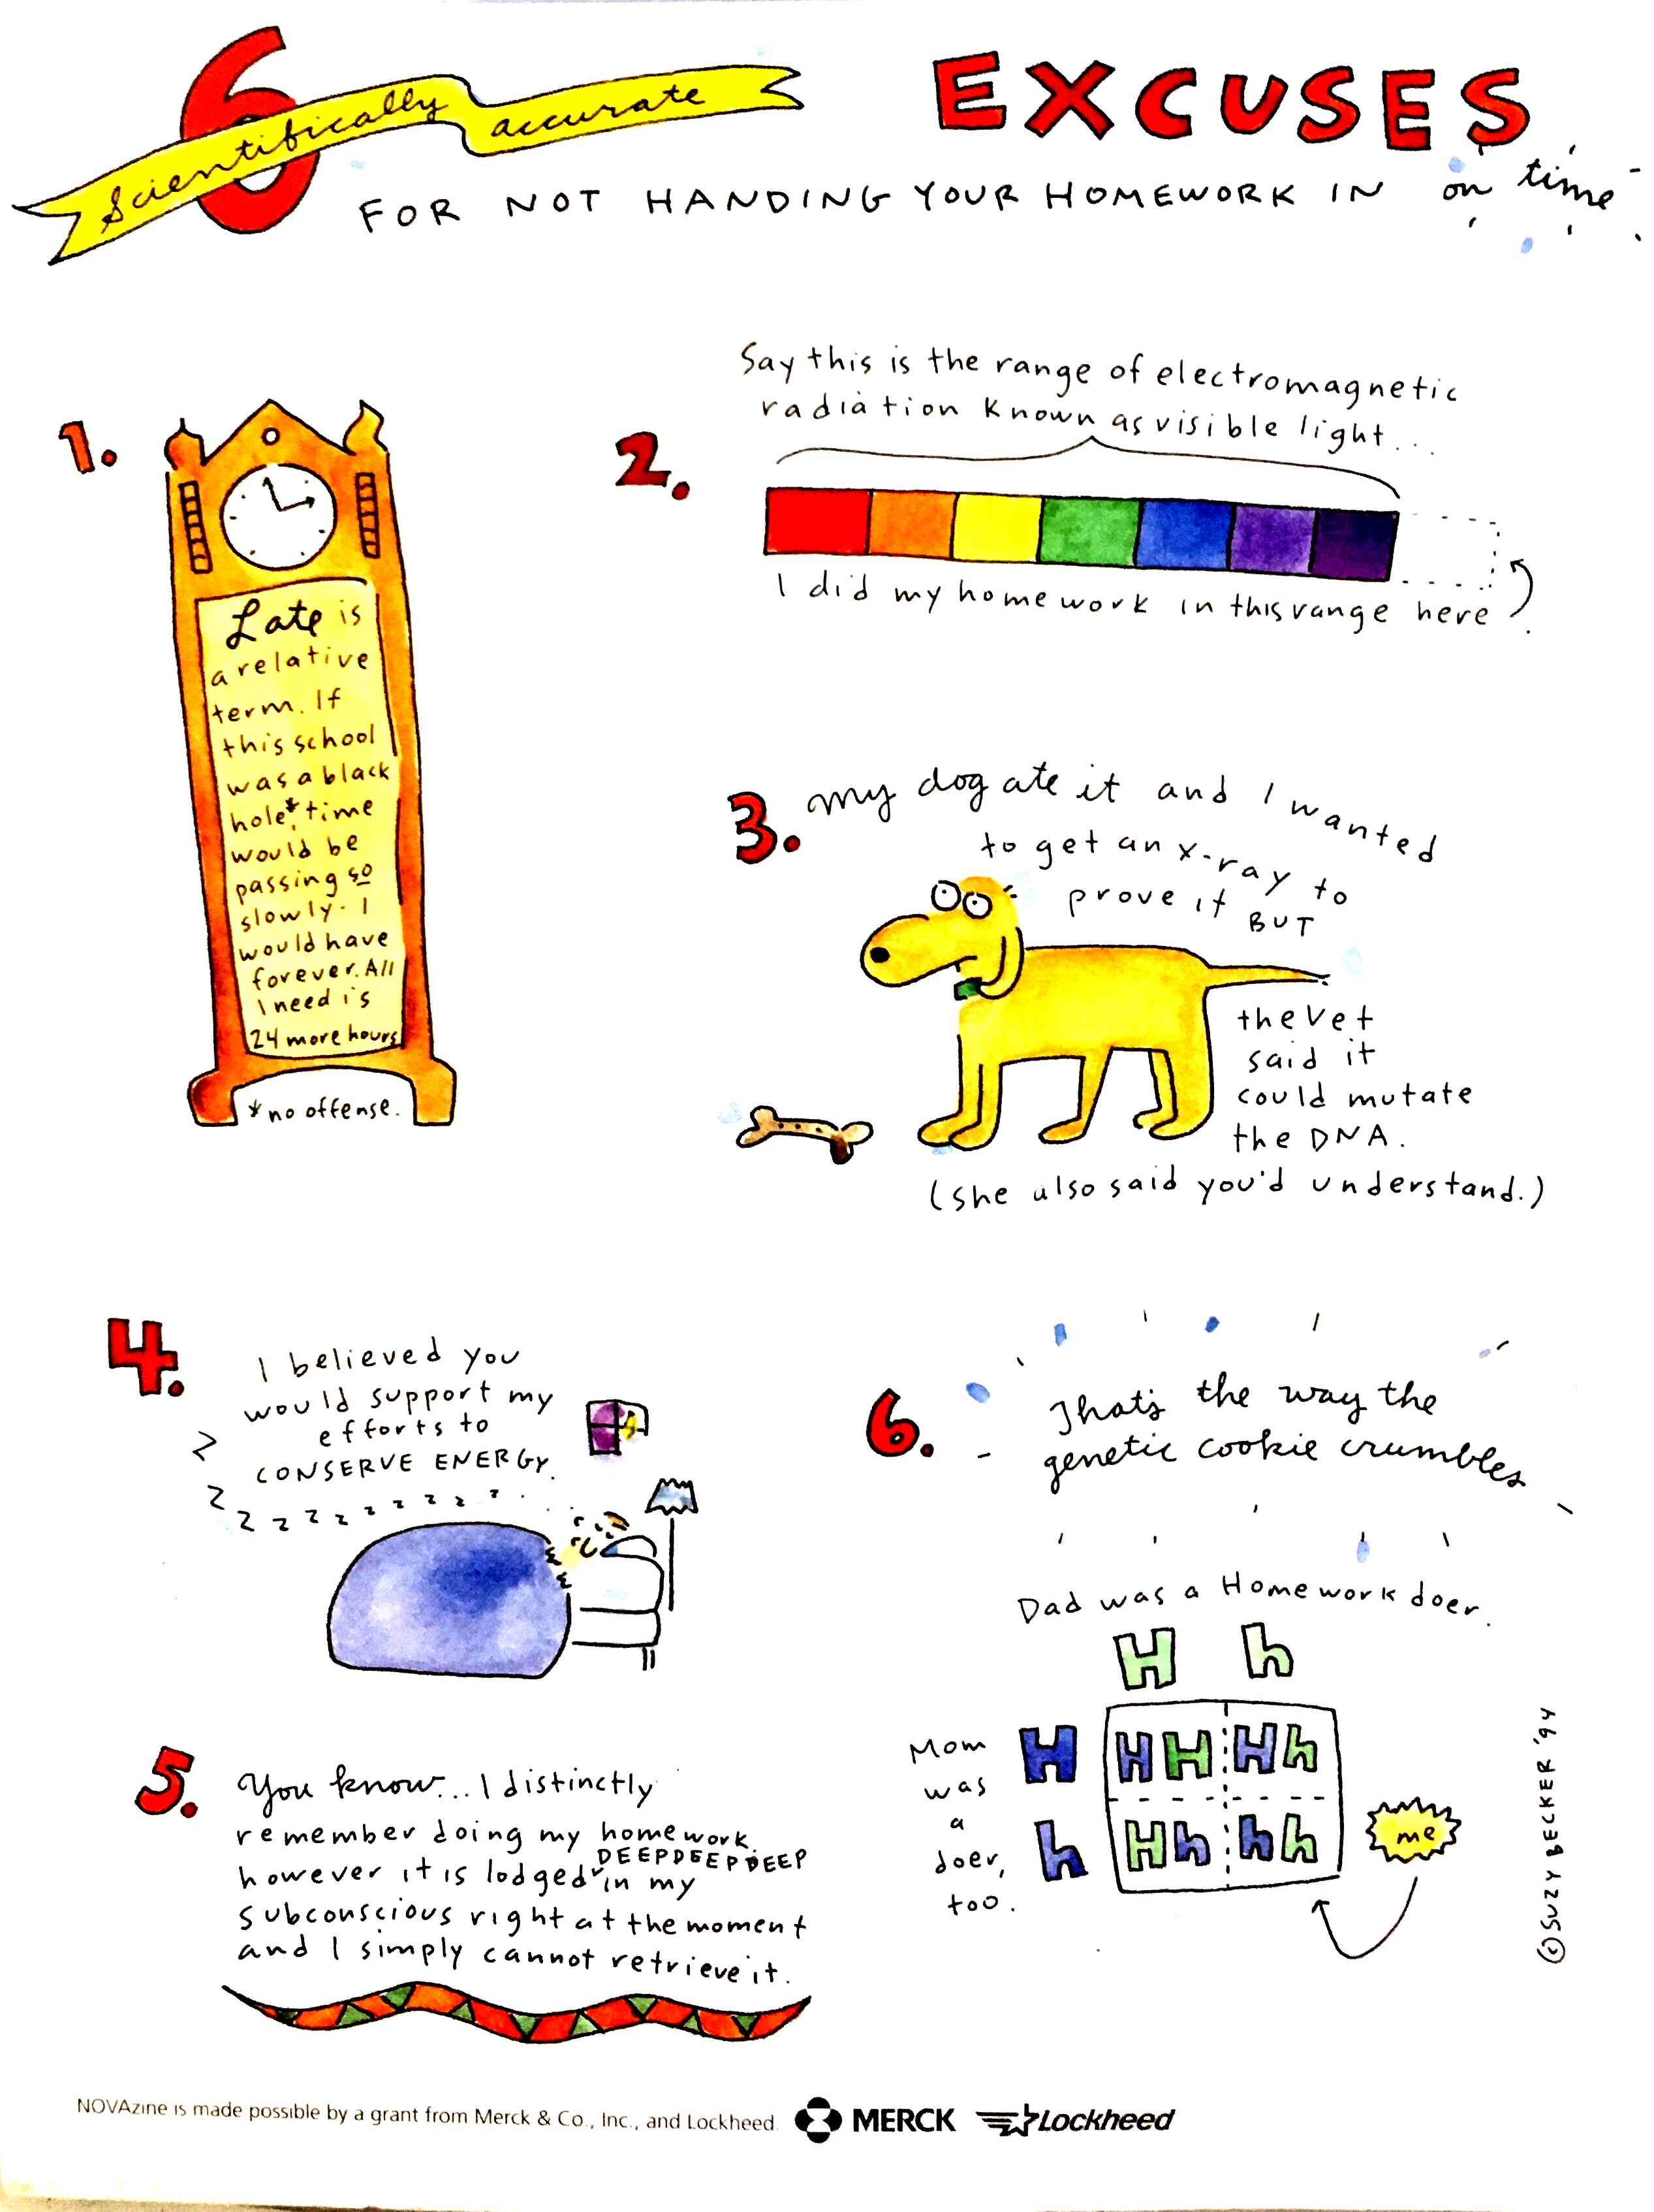 6
Scientifically accurate
EXCUSES
FOR NOT HANDING YOUR HOMEWORK IN on time
1.
Late is
a relative
term. If
this school
was a black
hole*, time
would be
passing so
slowly. I
would have
forever. All
I need is
24 more hours
*no offense.
2.
Say this is the range of electromagnetic
radiation known as visible light...
I did my homework in this range here
3.
my dog ate it and I wanted
to get an x-ray to
prove it BUT
the vet
said it
could mutate
the DNA.
(she also said you'd understand.)
4.
I believed you
would support my
efforts to
CONSERVE ENERGY.
z z z z z z z z z z z
5.
You know... I distinctly
remember doing my homework.
DEEPDEEPDEEP
however it is lodged in my
subconscious right at the moment
and I simply cannot retrieve it.
6.
That's the way the
genetic cookie crumbles
Dad was a Homework doer.
H h
Mom
was
a
doer,
too.
H HH Hh
h Hh hh
me
© SUZY BECKER '94
NOVAzine is made possible by a grant from Merck & Co., Inc., and Lockheed.
MERCK
Lockheed